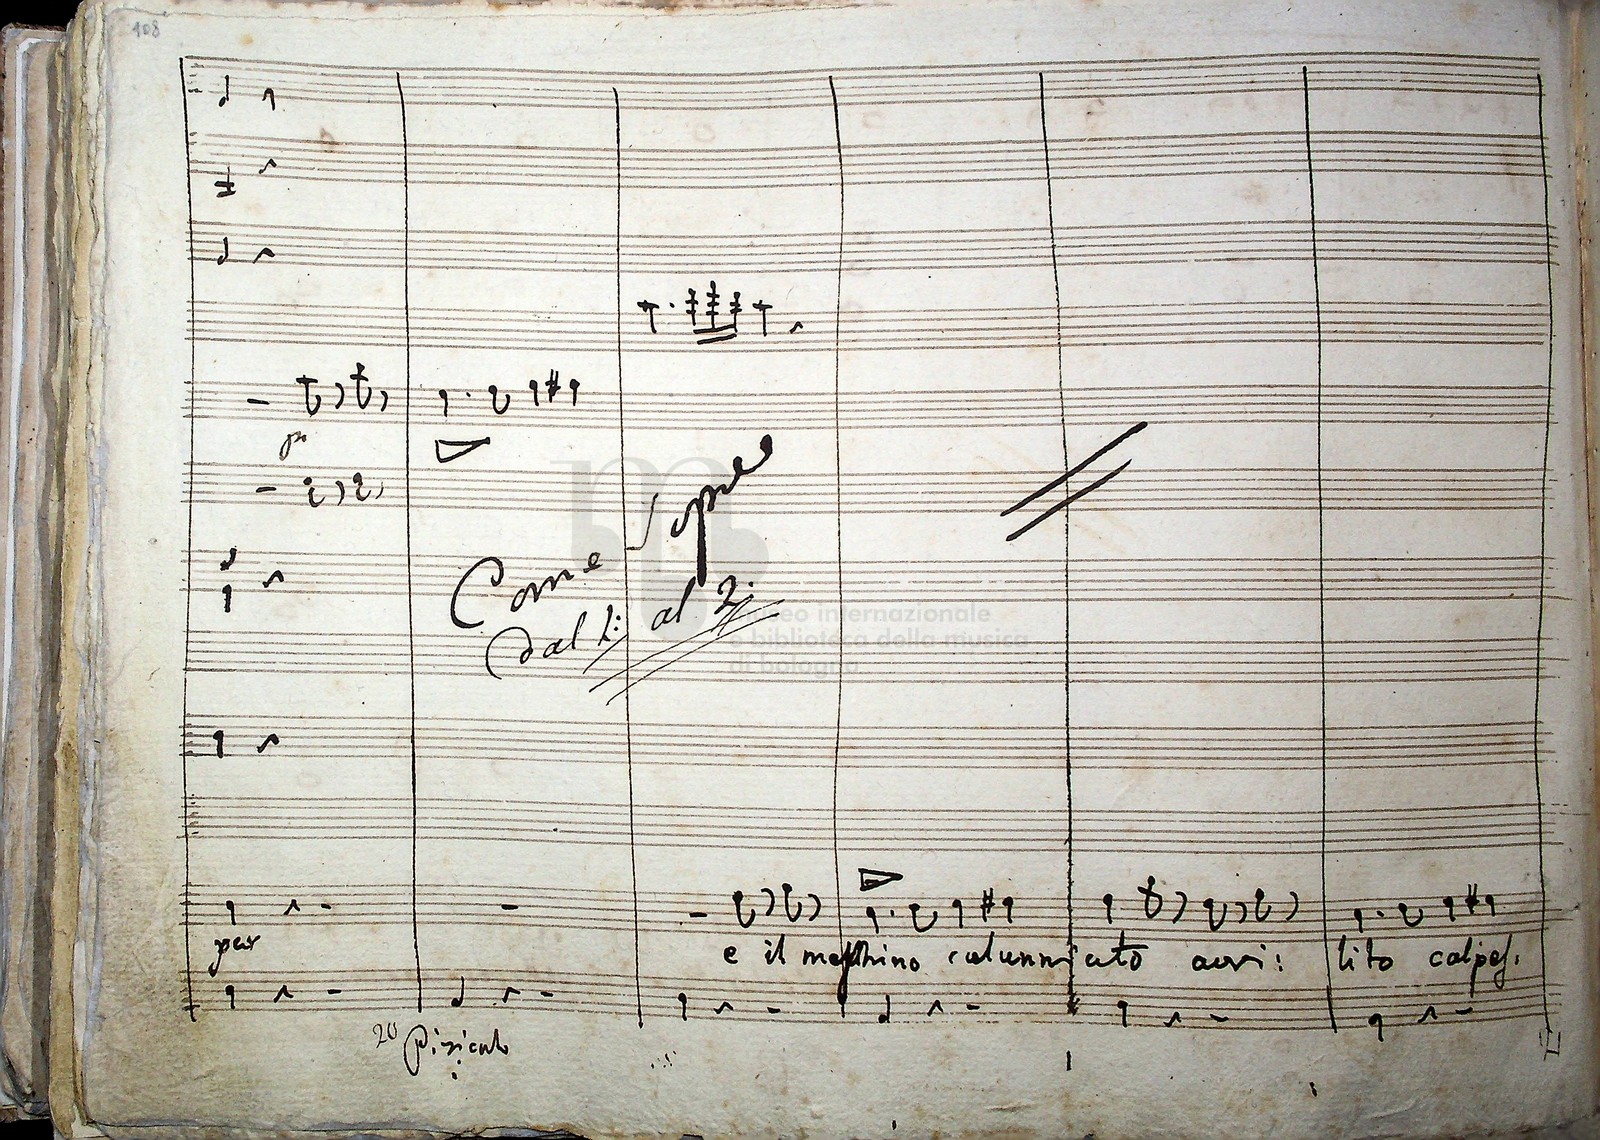 108
Come Sopra
Dal 1: al 2:
museo internazionale
e biblioteca della musica
di bologna
par e il meschino calunniato avvi: lito calpes:
20 Pizicato